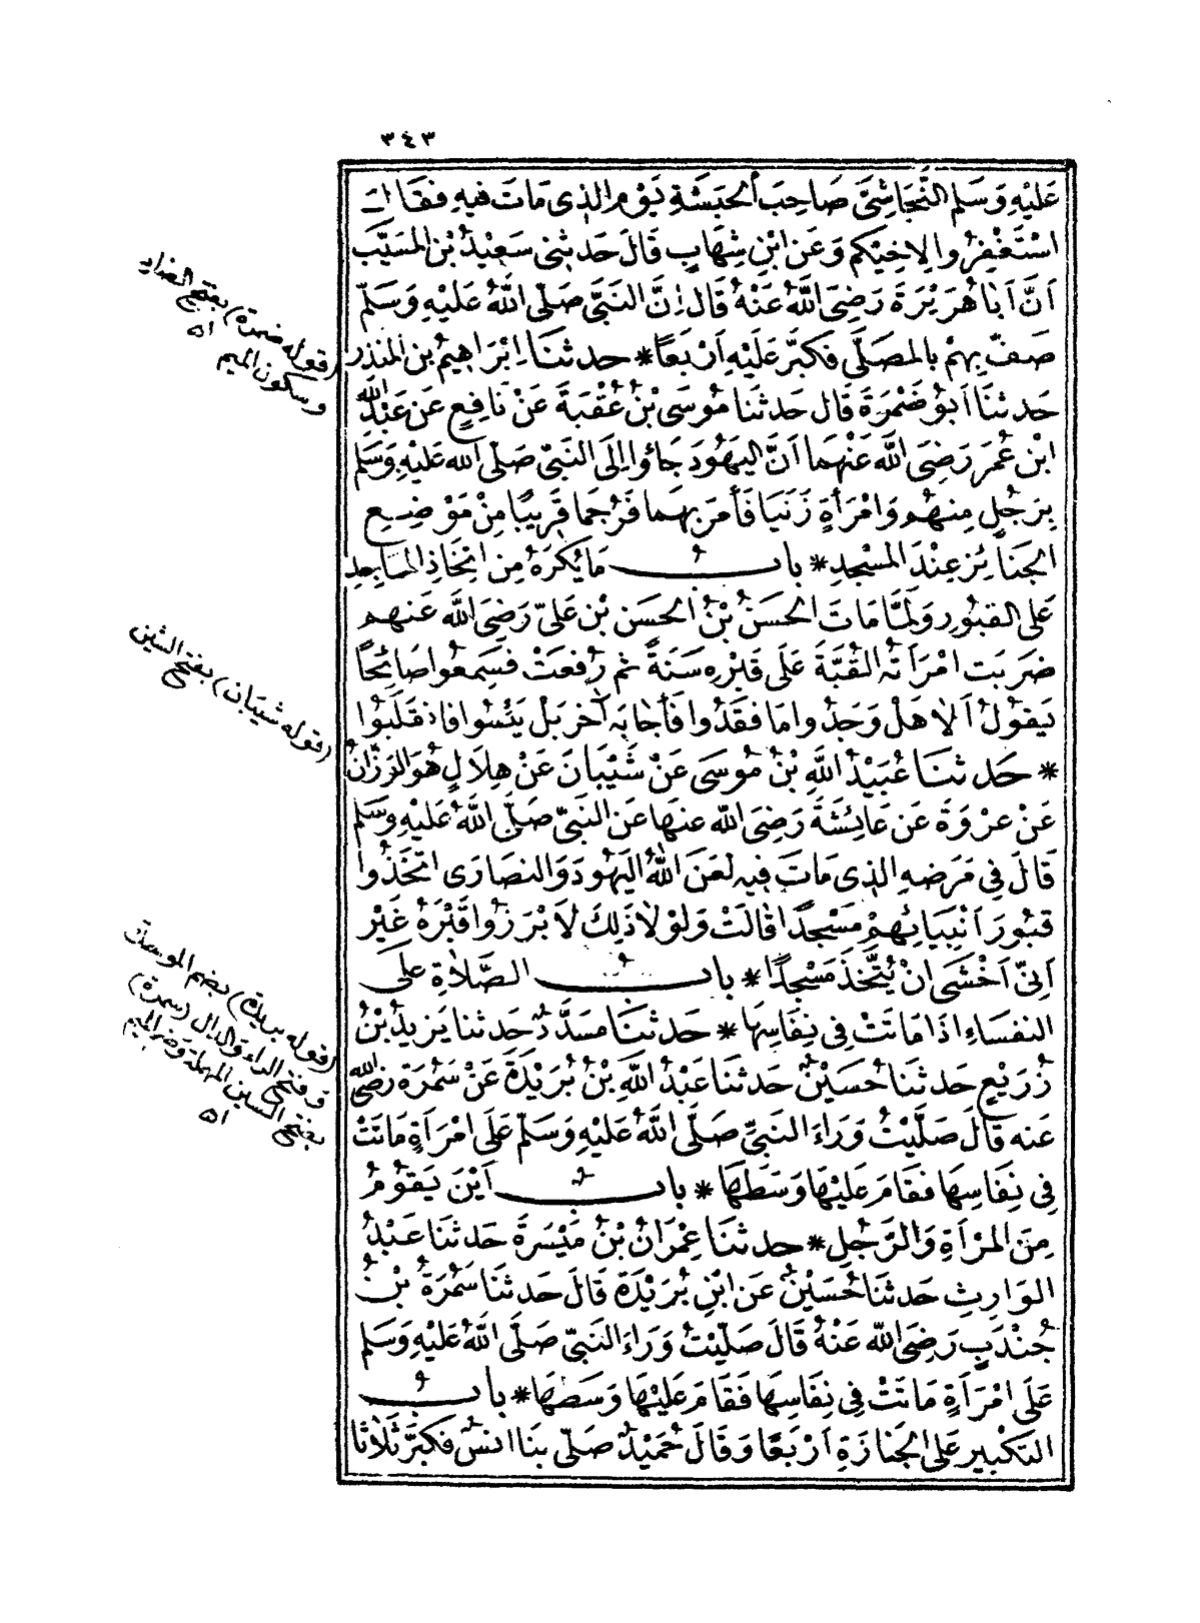 ٣٤٣
عَلَيْهِ وَسَلم النَّجَاشِيَّ صَاحِبَ الحَبَشَةِ يَوْمَ الذِى مَاتَ فيهِ فقَالَ
اسْتَغْفِرُوا لِاخِيْكم وَعَن ابْنِ شِهَابٍ قَالَ حَدثنِى سَعِيْدُ بْنُ المسَيَّب
اَنَّ اَبَا هُرَيْرَةَ رَضِىَ اللَّهُ عَنْهُ قَال اِنَّ النَّبِىَّ صَلّى اللَّهُ عَلَيْهِ وَسَلّمَ
صَفَّ بِهِمْ بالمصَلَّى فكبَّرَ عَلَيْهِ اَرْبَعًا * حدثنَا اِبْرَاهِيمُ بن المنْذر
حَدثنَا اَبُو ضَمْرَةَ قَال حَدثنَا مُوسَى بْنُ عُقْبَةَ عَنْ نَافِعٍ عَن عَبْدِ اللَّهِ
ابْن عُمَر رَضِىَ اللَّه عَنْهُمَا اَنَّ اليَهُودَ جَاؤا اِلَى النَّبِىّ صَلّى الله عَليْهِ وَسَلَم
بِرَجُلٍ مِنهُم وَامْرَأةٍ زَنَيَا فَأمَرَ بِهمَا فَرُجمَا قَرِيبًا مِنْ مَوْضِعِ
الجنَائِز عِنْدَ المسْجدِ * بابُ مَا يُكْرَهُ مِن اتِّخَاذِ المسَاجِدِ
عَلى القبُورِ وَلمَّا مَاتَ الحَسَنُ بْنُ الحسَن بْن عَليّ رَضِىَ اللَّه عَنهم
ضرَبَت امْرَأتهُ القُبَّةَ عَلَى قَبْرِهِ سَنَةً ثم رُفعَتْ فسَمِعُوا صَائِحًا
يَقوُلُ اَلاَ هَلْ وَجَدُوا مَا فقَدُوا فَأجَابَهُ آخرُ بَلْ يَئسُوا فانقلَبُوا
* حَدثنَا عُبَيْدُ اللَّهِ بْنُ مُوسَى عَنْ شَيْبَانَ عَنْ هِلاَلٍ هُوَ الوَزَّانُ
عَنْ عرْوَةَ عَن عَائِشَةَ رَضِىَ اللَّه عنهَا عَن النَّبِىّ صَلَّى اللَّهُ عَليْهِ وَسَلَّم
قَالَ فِى مَرَضهِ الذِى مَاتَ فيهِ لعَنَ اللَّهُ اليَهُودَ وَالنصَارَى اتّخَذُوا
قبُورَ اَنْبِيَائهِمْ مَسْجدًا قالَتْ وَلوْلاَ ذَلِكَ لاَبْرَزُوا قَبْرَهُ غَيْرَ
اَنِىّ اَخْشَى اَنْ يُتَّخَذَ مَسْجدًا * بابُ الصَّلاَةِ عَلَى
النفسَاءِ اذَا مَاتَتْ فِى نِفَاسِهَا * حَدثنَا مسَدَّدُ حَدثنا يَزيدُ بْنُ
زُرَيْعٍ حَدثنا حُسَيْنٌ حَدثنا عَبْدُ اللَّهِ بْنُ بُرَيْدَةَ عَنْ سَمُرَةَ رَضِىَ اللَّه
عَنه قَالَ صَلَّيْتُ وَرَاءَ النَّبِىِّ صَلَّى اللَّهُ عَلَيْهِ وَسَلّمَ عَلَى امْرَأةٍ مَاتَتْ
فِى نِفَاسِهَا فقَامَ عَليْهَا وَسَطهَا * بابُ اَيْنَ يَقوُمُ
مِنَ المرْأةِ وَالرَّجُلِ * حدثنَا عِمْرَانُ بْنُ مَيْسَرَةَ حَدثنَا عَبْدُ
الوَارِثِ حَدثنَا حُسَيْنٌ عَن ابْنِ بُرَيْدَةَ قَالَ حَدثنَا سَمُرَةُ بْنُ
جُنْدَبٍ رَضِىَ اللَّه عَنْهُ قَالَ صَلّيْتُ وَرَاءَ النَّبِىّ صَلَّى اللَّهُ عَليْهِ وَسَلم
عَلَى امْرَأةٍ مَاتَتْ فِى نِفَاسِهَا فَقَامَ عَليْهَا وَسَطهَا * بابُ
التكْبِيرِ عَلَى الجَنازَةِ اَرْبَعًا وَقَالَ حُمَيْدٌ صَلّى بنَا انسٌ فكبَّرَ ثَلاَثا
(قوله ضمرة) بفتح الضاد
وسكون الميم اه
(قوله شيبان) بفتح الشين
(قوله بريدة) بضم الموحدة
وفتح الراء والدال (سمرة)
بفتح السين المهملة وضم الميم
اه